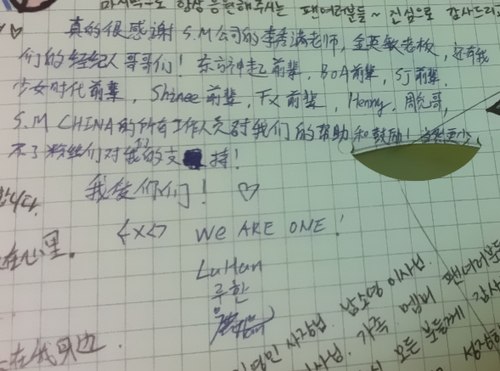 마지막으로 항상 응원해주시는 팬여러분들~ 진심으로 감사드리고
真的很感谢 S.M公司的李秀满老师, 金英敏老板, 还有我
们的经纪人哥哥们! 东方神起前辈, BoA前辈, SJ前辈,
少女时代前辈, Shinee前辈, FX前辈, Henny, 周觅哥,
S.M CHINA的所有工作人员对我们的帮助和鼓励! 当然更少
不了粉丝们对我们的支持!
我爱你们! ♡
합니다.
<x> WE ARE ONE!
在心里。
LuHan
루한
一在我身边.
김영민 사장님 남소영 이사님
이사님. 가족. 멤버 팬여러분들
모든 분들께 감사